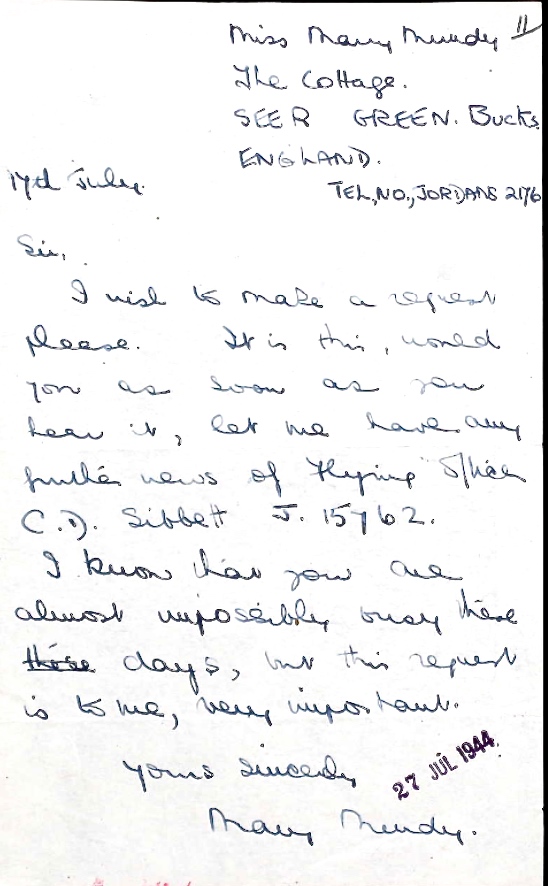 Miss Mary Mundy 11
The Cottage.
SEER GREEN. Bucks.
ENGLAND.
17th July.
TEL, NO., JORDANS 2176
Sir,
I wish to make a request
please. It is this, would
you as soon as you
hear it, let me have any
further news of Flying Officer
C.D. Sibbett J. 15762.
I know that you are
almost impossibly busy these
these days, but this request
is to me, very important.
Yours sincerely
27 JUL 1944.
Mary Mundy.